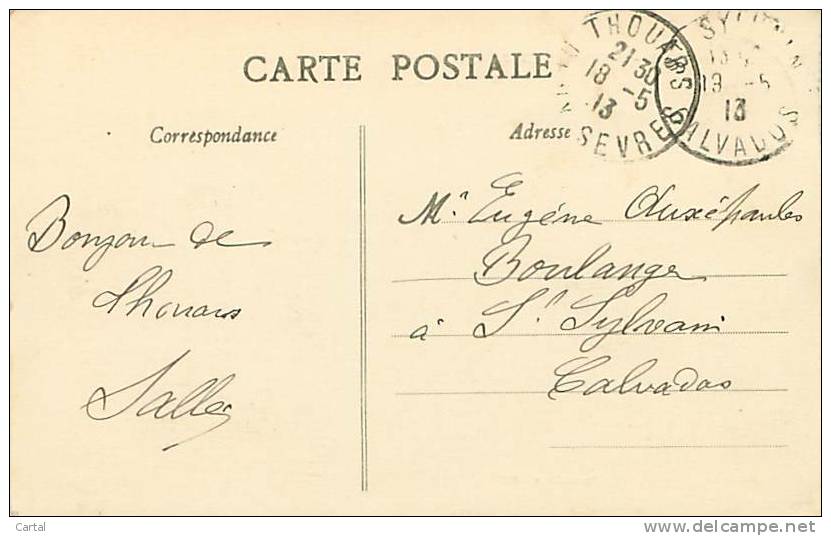 CARTE POSTALE
THOUARS
21 30
18 -5
13
SEVRES
SYLVAIN
19 -5
13
CALVADOS
Correspondance
Adresse
Bonjour de
Thouars
Salles
Mr. Eugène
Boulanger
à St. Sylvain
Calvados
Cartal
delcampe.net